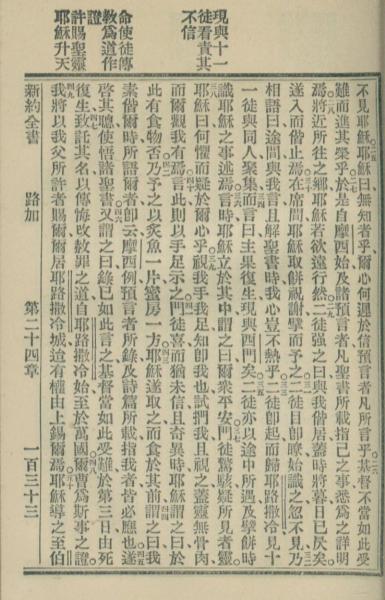 現與十一
徒看責其
不信
命使徒傳
教爲道作
證
許賜聖靈
耶穌升天
不見耶穌耶穌曰無知者乎爾心何遲於信預言者凡所言乎基督不當如此受
難而進其榮乎於是自摩西始及諸預言者凡聖書所載指己之事悉爲之詳明
焉將近所往之鄉耶穌若欲遠行然二徒強之曰與我偕居蓋時將暮日已昃矣
遂入而偕止焉在席間耶穌取餅祝謝擘而予之二徒目卽瞭始識之忽不見乃
相語曰途間與我言且解聖書時我心豈不熱乎二徒卽起而歸耶路撒冷見十
一徒與同人聚集而言曰主果復生現與西門矣二徒亦以途中所遇及擘餅時
識耶穌之事述焉言時耶穌立於其中謂之曰爾衆平安門徒驚駭疑所見者靈
耶穌曰何懼而疑於爾心乎視我手我足知卽我也試捫我且視之蓋靈無骨肉
而爾觀我有焉言此則以手足示之門徒喜而猶未信且奇異時耶穌謂之曰於
此有食物否乃予之以炙魚一片蜜房一方耶穌遂取之而食於其前謂之曰我
素偕爾時所語爾者卽云摩西例預言者所錄及詩篇所載指我者皆必應也遂
啓其聰使悟諸聖書又謂之曰錄已如此言之基督當如此受難於第三日由死
復生致託其名以傳悔改赦罪之道自耶路撒冷始至於萬國爾曹爲斯事之證
我將以我父所許者賜爾爾居耶路撒冷城迨有權由上錫爾焉耶穌導之至伯
新約全書 路加 第二十四章 一百三十三